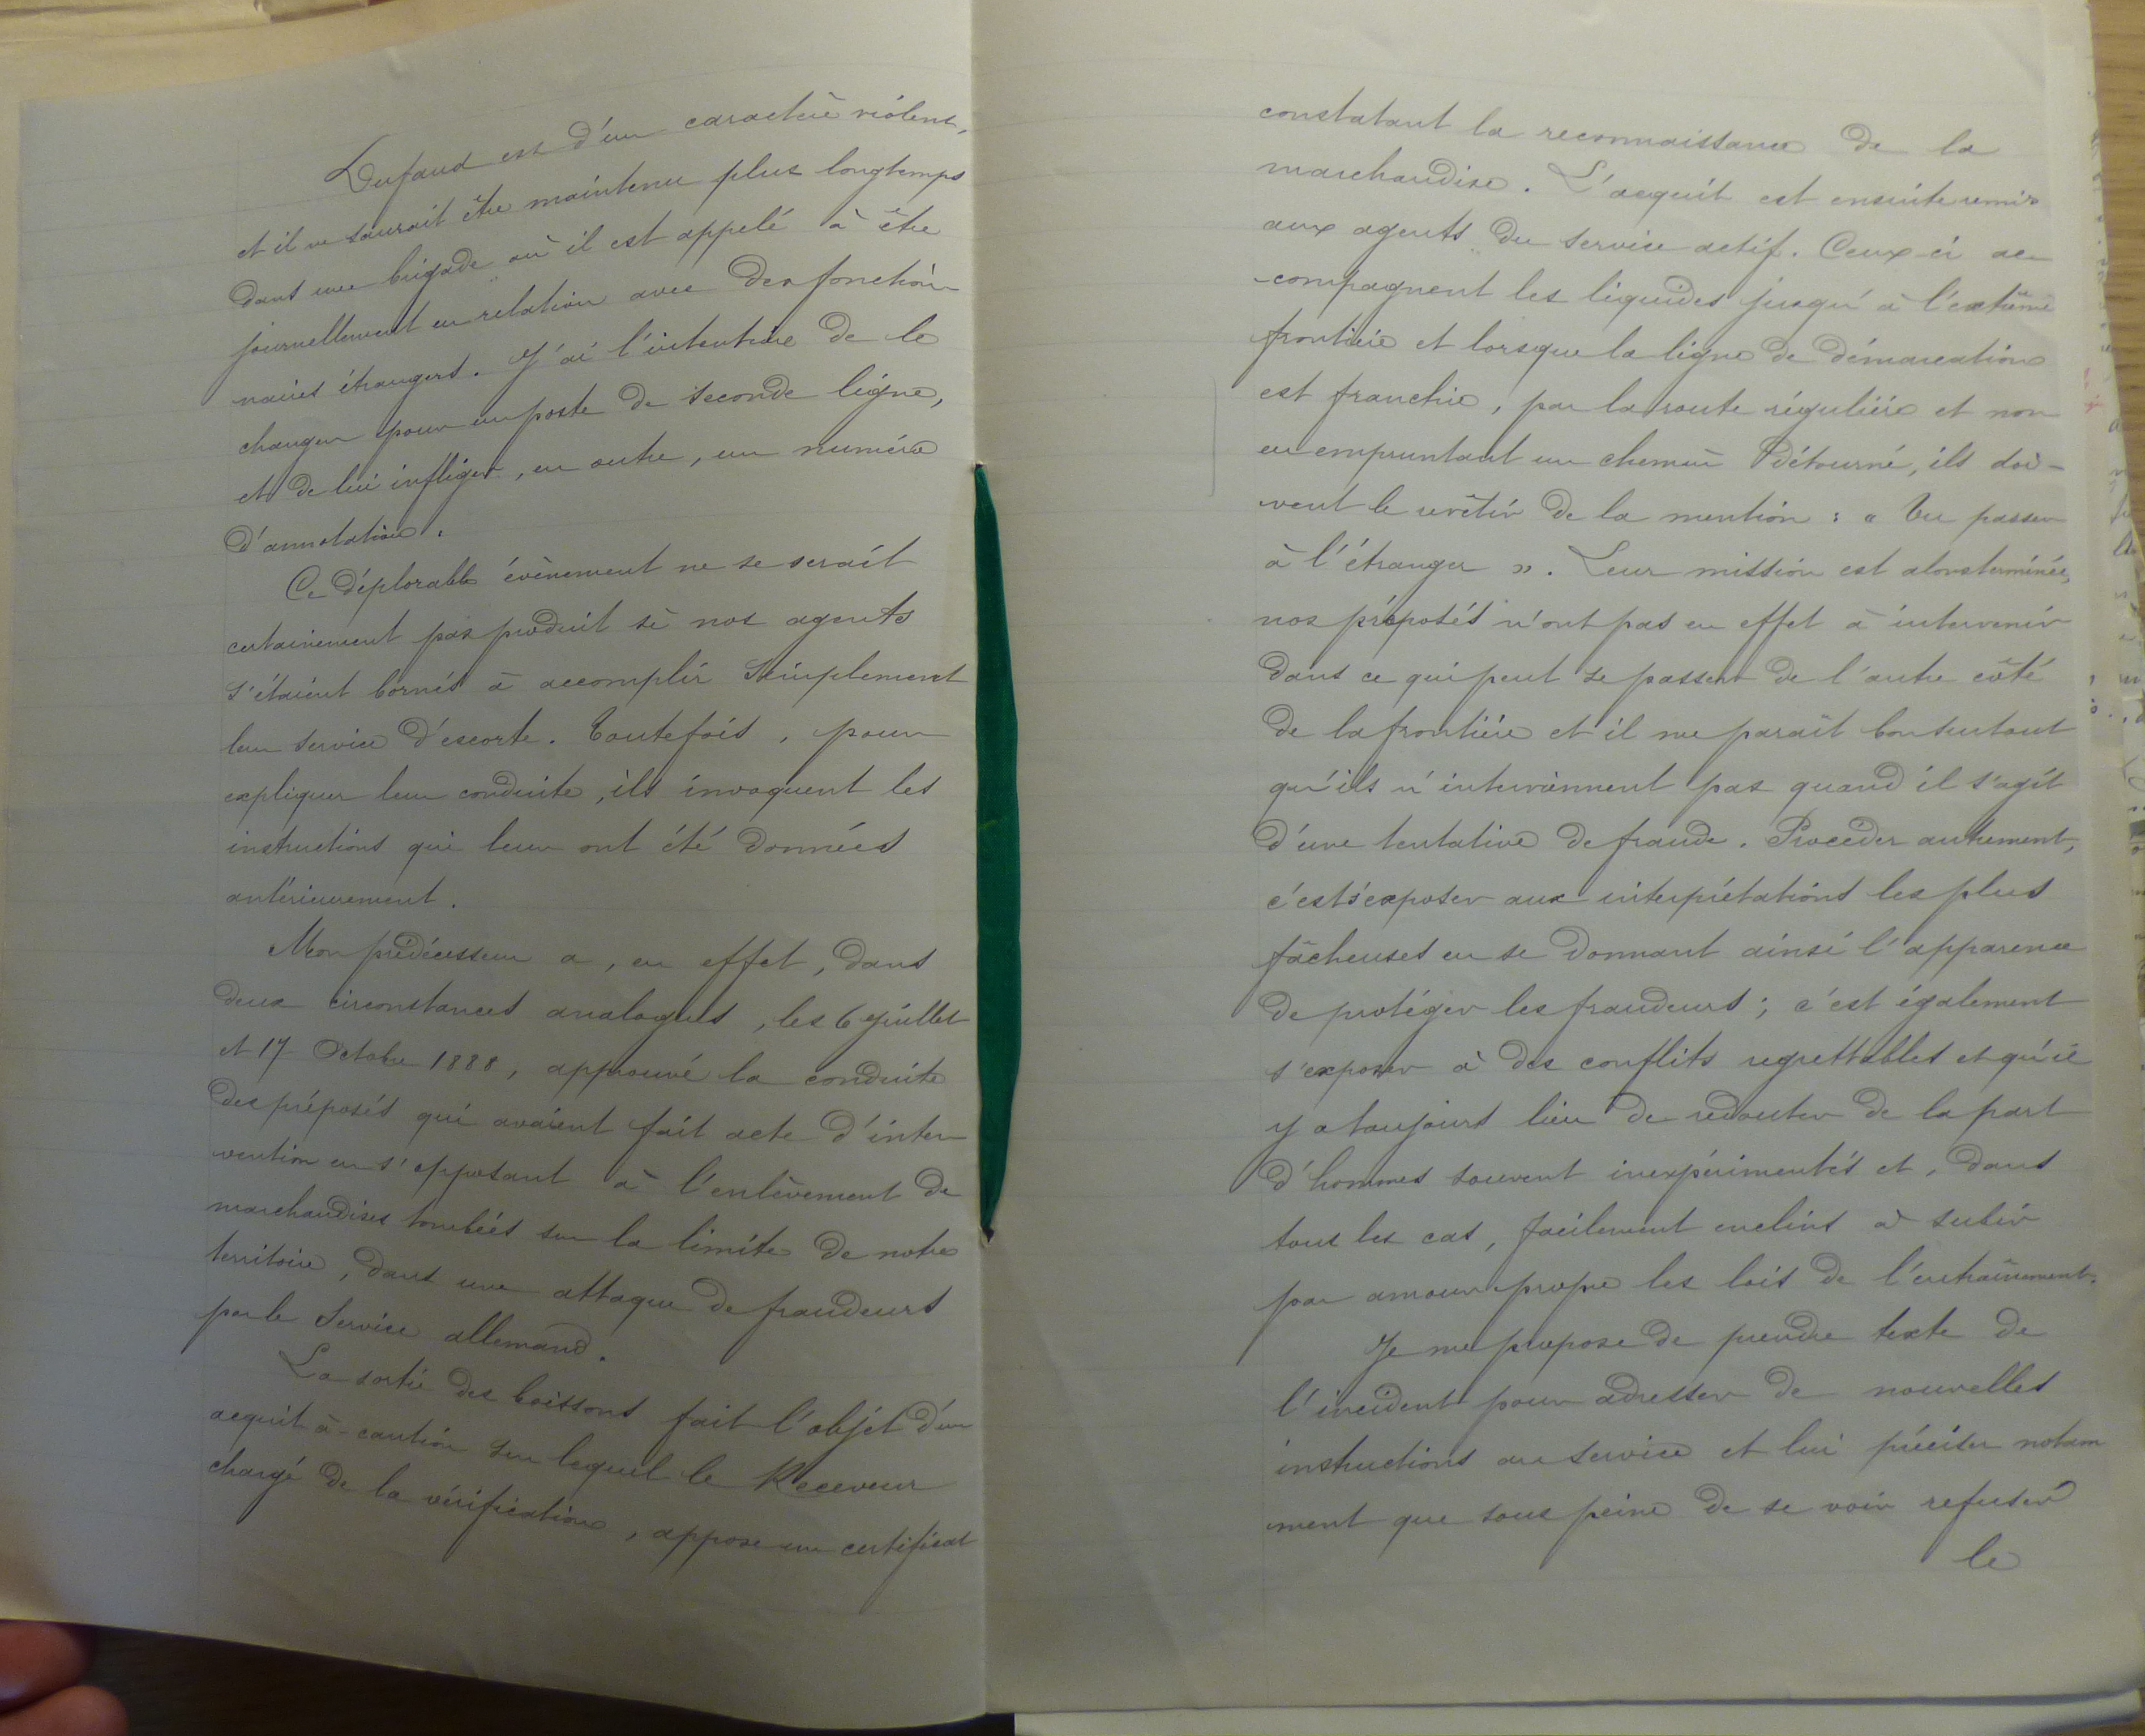 Dufaud est d'un caractère violent,
et il ne saurait être maintenu plus longtemps
dans une brigade où il est appelé à être
journellement en relation avec des fonction-
naires étrangers. J'ai l'intention de le
changer pour un poste de seconde ligne,
et de lui infliger, en outre, un numéro
d'annotation.
Ce déplorable évènement ne se serait
certainement pas produit si nos agents
s'étaient bornés à accomplir simplement
leur service d'escorte. Toutefois, pour
expliquer leur conduite, ils invoquent les
instructions qui leur ont été données
antérieurement.
Mon prédécesseur a, en effet, dans
deux circonstances analogues, les 6 Juillet
et 17 Octobre 1888, approuvé la conduite
des préposés qui avaient fait acte d'inter
vention en s'opposant à l'enlèvement de
marchandises tombées sur la limite de notre
territoire, dans une attaque de fraudeurs
par le Service allemand.
La sortie des boissons fait l'objet d'un
acquit-à-caution sur lequel le Receveur
chargé de la vérification, appose un certificat
constatant la reconnaissance de la
marchandise. L'acquit est ensuite remis
aux agents du service actif. Ceux-ci ac
-compagnent les liquides jusqu'à l'extrême
frontière et lorsque la ligne de démarcation
est franchie, par la route régulière et non
en empruntant un chemin détourné, ils doi-
vent le revêtir de la mention : « Vu passer
à l'étranger ». Leur mission est alors terminée,
nos préposés n'ont pas en effet à intervenir
dans ce qui peut se passer de l'autre côté
de la frontière et il me parait bon surtout
qu'ils n'interviennent pas quand il s'agit
d'une tentative de fraude. Procéder autrement,
c'est s'exposer aux interprétations les plus
fâcheuses en se donnant ainsi l'apparence
de protéger les fraudeurs ; c'est également
s'exposer à des conflits regrettables et qu'il
y a toujours lieu de redouter de la part
d'hommes souvent inexpérimentés et, dans
tous les cas, facilement enclins à subir
par amour-propre les lois de l'entraînement.
Je me propose de prendre texte de
l'incident pour adresser de nouvelles
instructions au service et lui préciser notam
ment que sous peine de se voir refuser
le